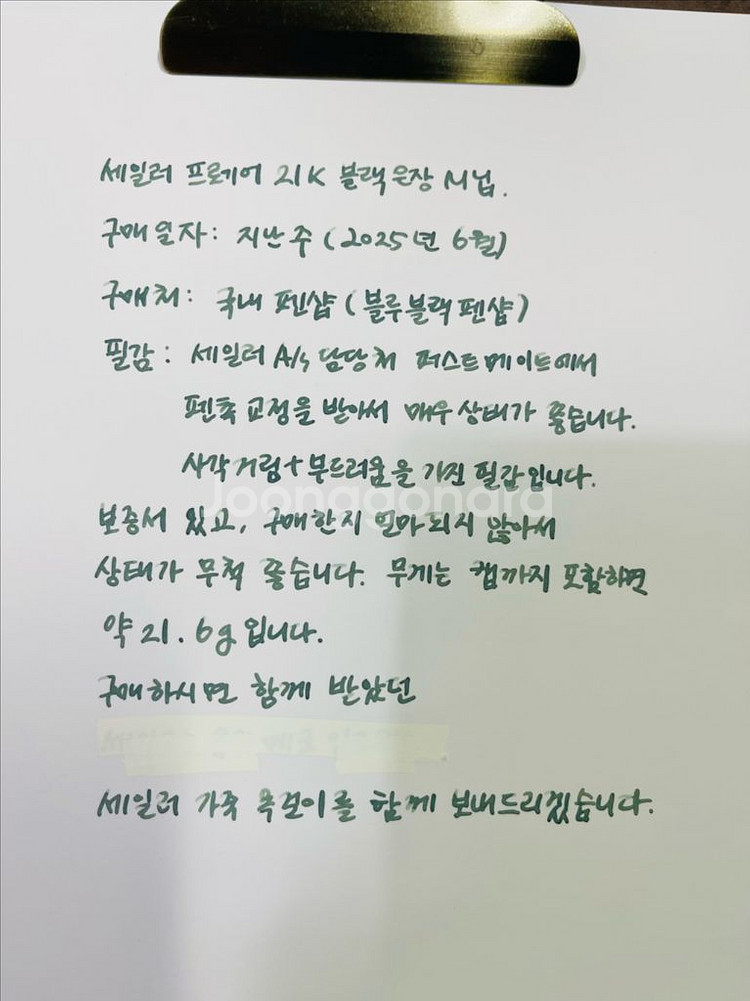 세일러 프로기어 21K 블랙은장 M닙.
구매일자: 지난 주 (2025년 6월)
구매처: 국내 펜샵 (블루블랙펜샵)
필감: 세일러 A/s 담당처 퍼스트메이트에서
펜촉 교정을 받아서 매우 상태가 좋습니다.
사각거림+부드러움을 가진 필감입니다.
Joonggonara
보증서 있고, 구매한지 얼마되지 않아서
상태가 무척 좋습니다. 무게는 캡까지 포함하면
약 21.6g입니다.
구매하시면 함께 받았던
세일러 가죽 목걸이를 함께 보내드리겠습니다.